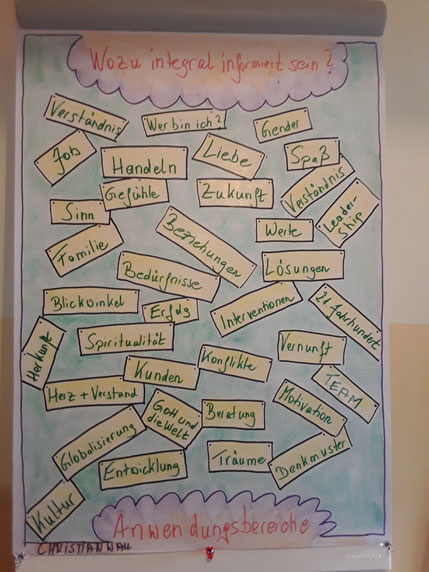 Wozu integral informiert sein?
Verständnis
Wer bin ich?
Gender
Job
Handeln
Liebe
Spaß
Gefühle
Zukunft
Verständnis
Sinn
Leader-
ship
Beziehungen
Werte
Familie
Bedürfnisse
Lösungen
Blickwinkel
Erfolg
Interventionen
21. Jahrhundert
Herkunft
Spiritualität
Konflikte
Vernunft
Kunden
TEAM
Herz + Verstand
Gott und
die Welt
Beratung
Motivation
Globalisierung
Entwicklung
Träume
Denkmuster
Kultur
Anwendungsbereiche